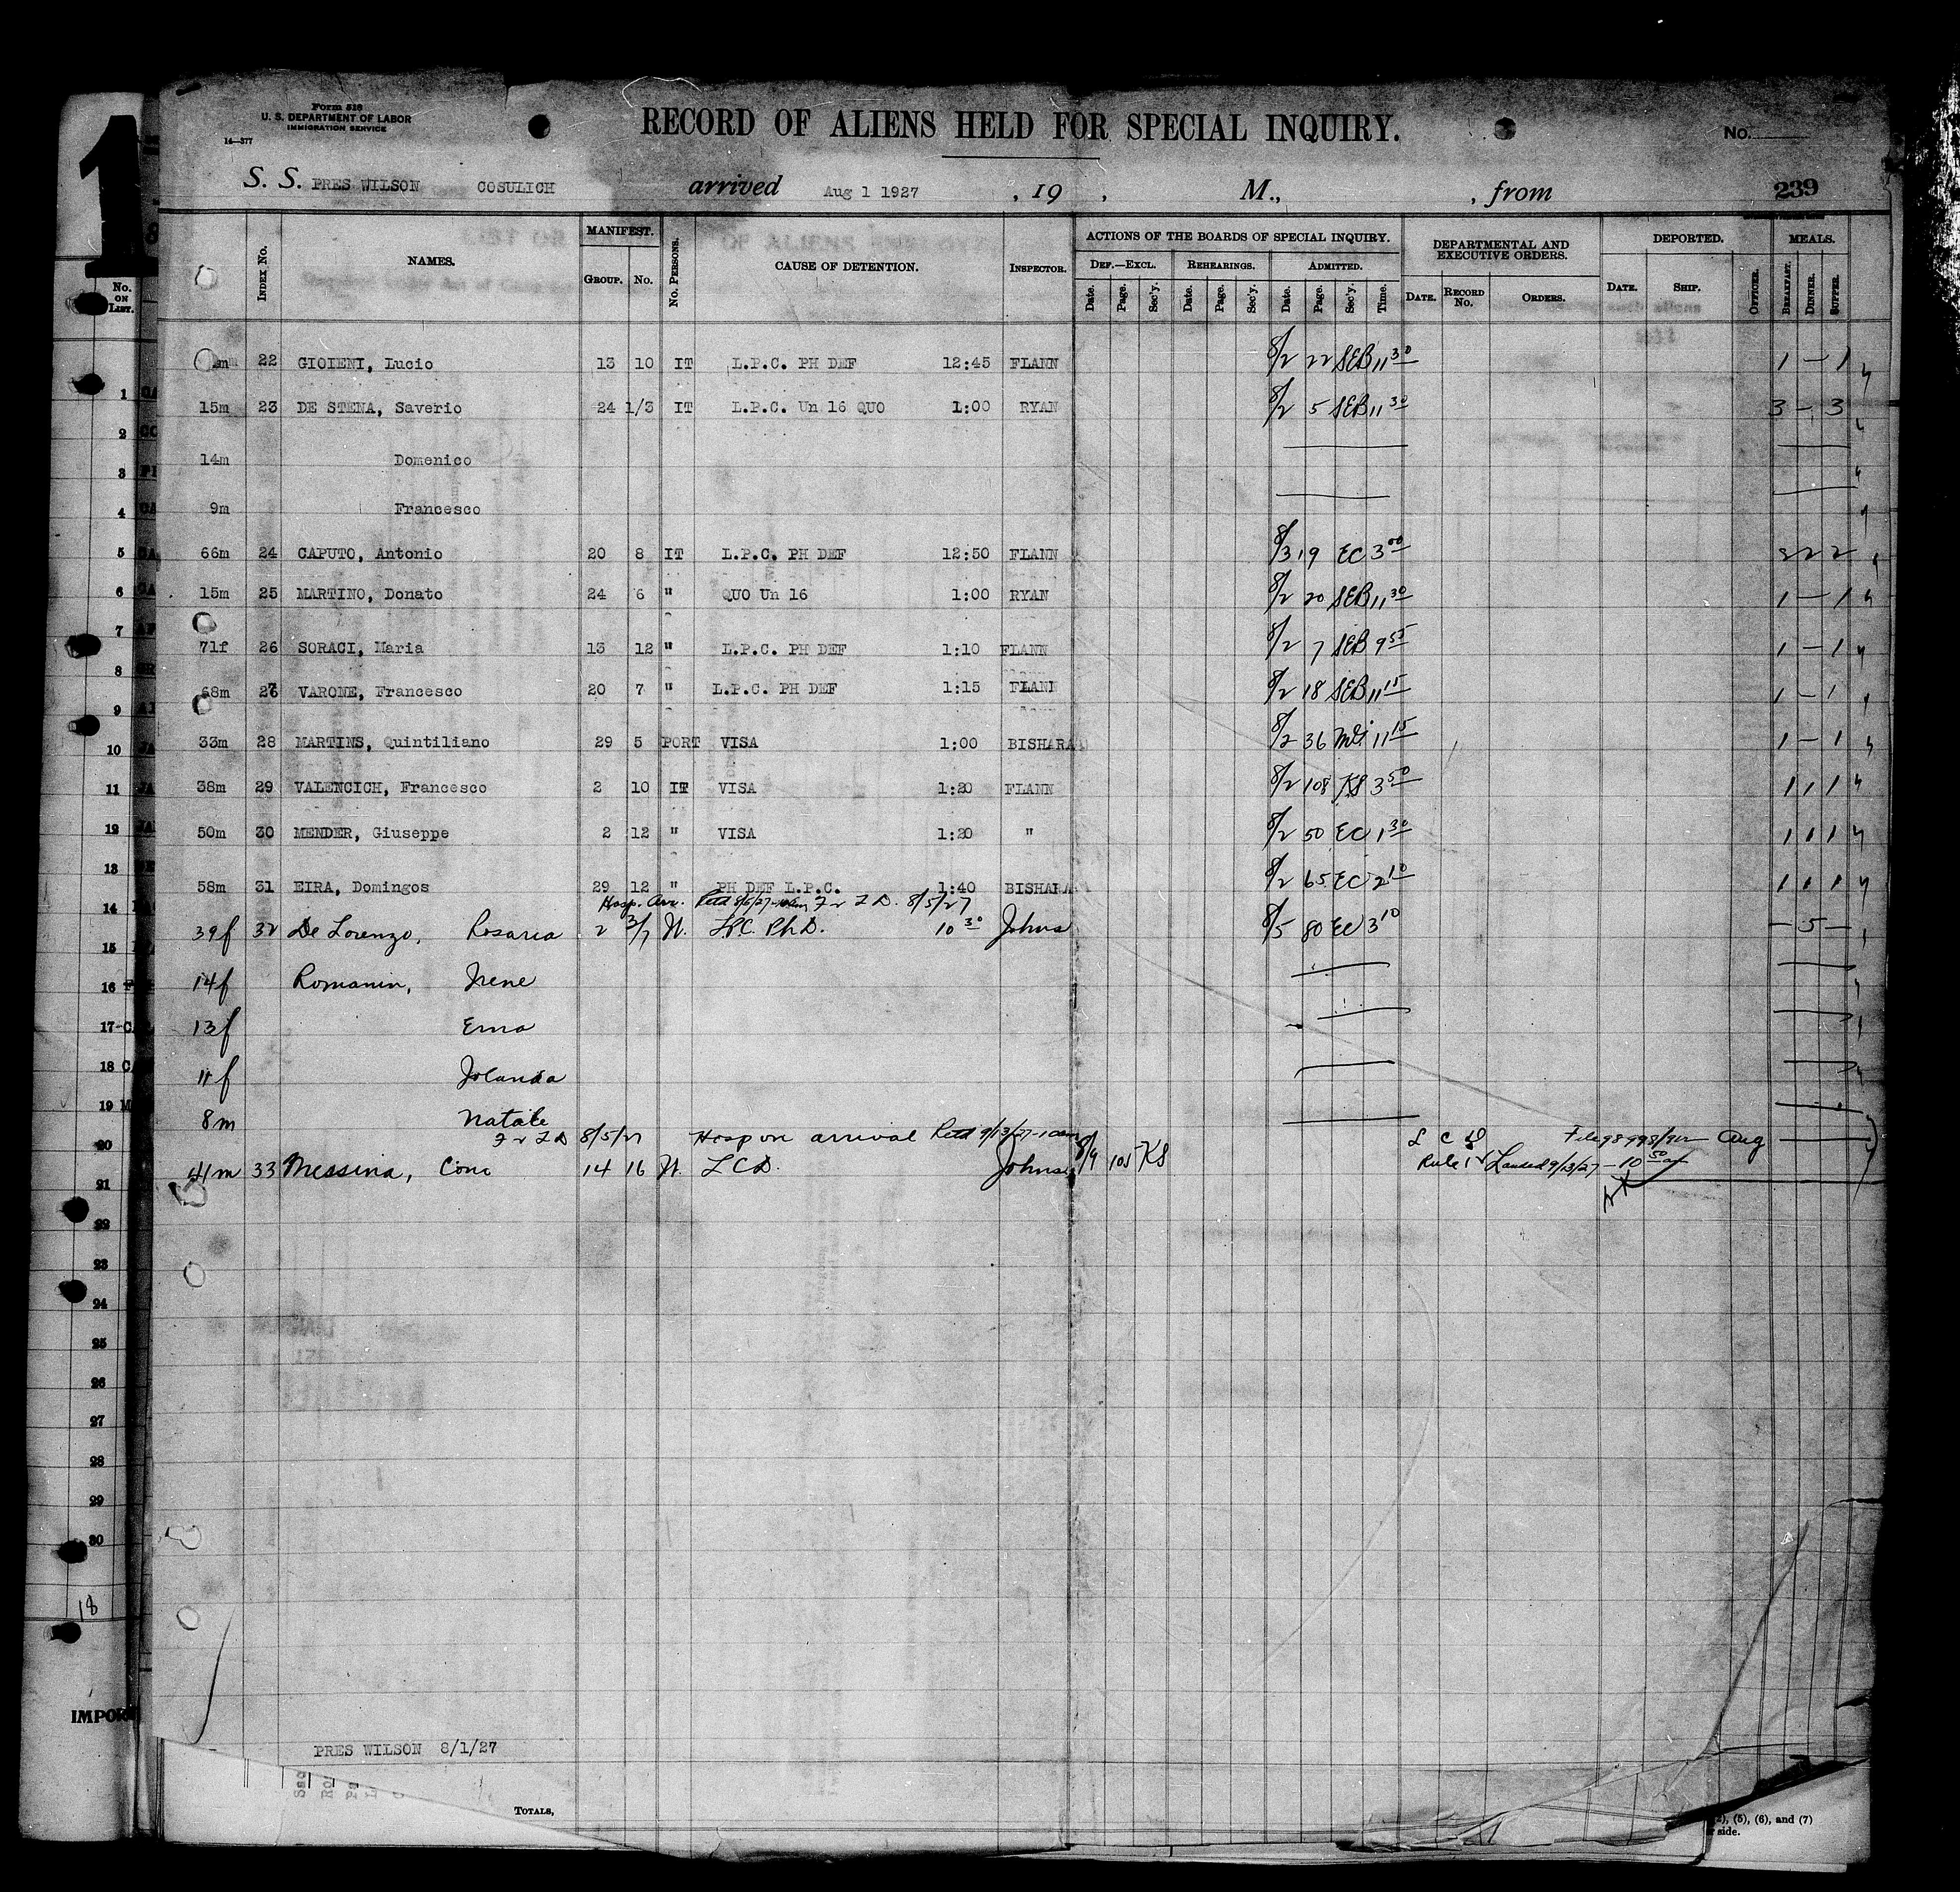 Form 518
U. S. DEPARTMENT OF LABOR
IMMIGRATION SERVICE
14—377
RECORD OF ALIENS HELD FOR SPECIAL INQUIRY.
No.
S. S. PRES WILSON COSULICH arrived Aug 1 1927 , 19 , M., , from 239
MANIFEST. ACTIONS OF THE BOARDS OF SPECIAL INQUIRY. DEPARTMENTAL AND EXECUTIVE ORDERS. DEPORTED. MEALS.
INDEX No. NAMES. GROUP. No. No. PERSONS. CAUSE OF DETENTION. INSPECTOR. DEF.—EXCL. REHEARINGS. ADMITTED.
Date. Page. Sec'y. Date. Page. Sec'y. Date. Page. Sec'y. Time. DATE. RECORD No. ORDERS. DATE. SHIP. OFFICER. BREAKFAST. DINNER. SUPPER.
22 GIOIENI, Lucio 13 10 IT L.P.C. PH DEF 12:45 FLANN 8/2 22 SEB 11 30 1 — 1
15m 23 DE STENA, Saverio 24 1/3 IT L.P.C. Un 16 QUO 1:00 RYAN 8/2 5 SEB 11 30 3 — 3
14m Domenico
9m Francesco
66m 24 CAPUTO, Antonio 20 8 IT L.P.C. PH DEF 12:50 FLANN 8/3 19 EC 3 00 2 2 2
15m 25 MARTINO, Donato 24 6 " QUO Un 16 1:00 RYAN 8/2 20 SEB 11 30 1 — 1
71f 26 SORACI, Maria 13 12 " L.P.C. PH DEF 1:10 FLANN 8/2 7 SEB 9 55 1 — 1
68m 27 VARONE, Francesco 20 7 " L.P.C. PH DEF 1:15 FLANN 8/2 18 SEB 11 15 1 — 1
33m 28 MARTINS, Quintiliano 29 5 PORT VISA 1:00 BISHARA 8/2 36 11 15 1 — 1
38m 29 VALENCICH, Francesco 2 10 IT VISA 1:20 FLANN 8/2 108 KS 3 50 1 1 1
50m 30 MENDER, Giuseppe 2 12 " VISA 1:20 " 8/2 50 EC 1 30 1 1 1
58m 31 EIRA, Domingos 29 12 " PH DEF L.P.C. 1:40 BISHARA 8/2 65 EC 2 10 1 1 1
Hosp. Arr. 8/5/27
39f 32 De Lorenzo, Rosaria 2 3/7 It. LPC. Ph D. 10 30 Johns 8/5 80 EC 3 10 — 5 —
14f Romanin, Irene
13f Erna
11f Jolanda
8m Natale
8/5/27 Hosp on arrival Retd 9/13/27 L C D Aug
41m 33 Messina, Cono 14 16 It. LCD. Johns 8/9 105 KS Rule Landed 9/13/27 — 10 50
PRES WILSON 8/1/27
TOTALS,
No. ON LIST.
1
2
3
4
5
6
7
8
9
10
11
12
13
14
15
16
17
18
19
20
21
22
23
24
25
26
27
28
29
30
18
IMPOR
(5), (6), and (7)
side.